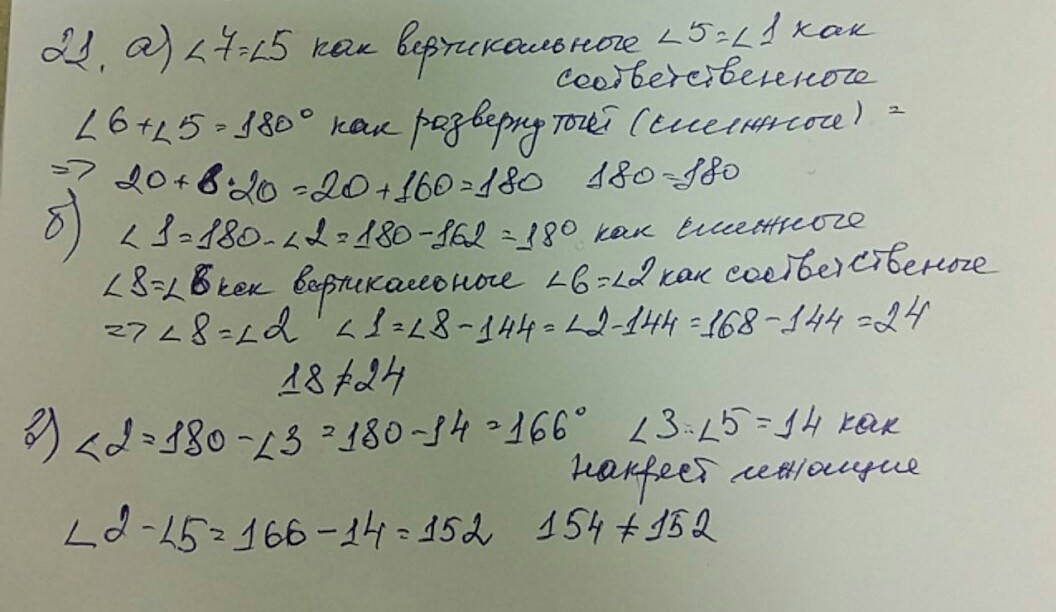 21. а) ∠7=∠5 как вертикальные ∠5=∠1 как
соответственные
∠6+∠5=180° как развернутый (смежные) =
=> 20+8·20=20+160=180 180=180
б) ∠1=180-∠2=180-162=18° как смежные
∠8=∠6 как вертикальные ∠6=∠2 как соответственые
=> ∠8=∠2 ∠1=∠8-144=∠2-144=168-144=24
18≠24
г) ∠2=180-∠3=180-14=166° ∠3=∠5=14 как
накрест лежащие
∠2-∠5=166-14=152 154≠152